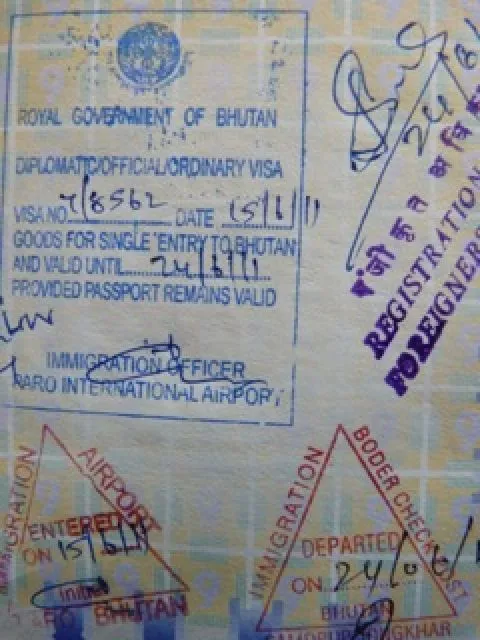 ROYAL GOVERNMENT OF BHUTAN
DIPLOMATIC/OFFICIAL/ORDINARY VISA
VISA NO. 7/8562 DATE 15/6/11
GOODS FOR SINGLE ENTRY TO BHUTAN
AND VALID UNTIL 24/6/11
PROVIDED PASSPORT REMAINS VALID
IMMIGRATION OFFICER
PARO INTERNATIONAL AIRPORT
पंजीकृत
REGISTRATION
FOREIGNERS
IMMIGRATION
AIRPORT
ENTERED
ON 15/6/11
Initial
PARO BHUTAN
IMMIGRATION
BODER CHECK POST
DEPARTED
ON 24/
BHUTAN
SAMDRUP JONGKHAR